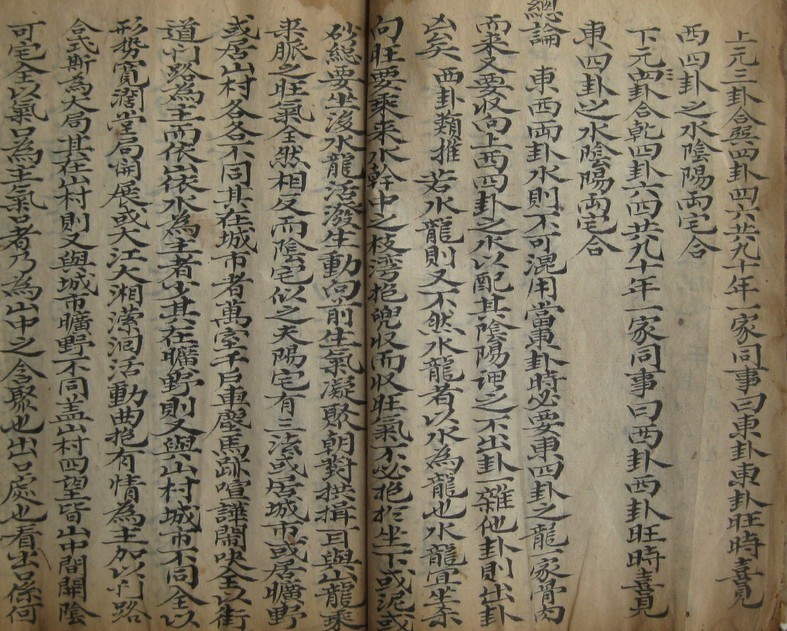 上元三卦合巽四卦四六廿九十年一家同事曰東卦東卦旺時喜見
西四卦之水陰陽両宅合
下元四卦合乾四卦六四廿九十年一家同事曰西卦西卦旺時喜見
東四卦之水陰陽両宅合
總論 東西両卦水則不可混用當東卦時必要東四卦之龍一家骨肉
而来又要収向上西四卦之水以配其陰陽謂之不出卦一雜他卦則出卦
凶矣 西卦類推 若水龍則又不然水龍者以水為龍也水龍宜坐衰
向旺要乘来水幹中之枝湾抱兜収而収旺氣不必抱於坐下或泥或
砂総要坐後水龍活潑生動向前生氣凝聚朝對拱揖一耳與山龍乘
来脈之旺氣全然相反而陰宅似之夫陽宅有三法或居城市或居曠野
或居山村各各不同其在城市者萬室千戶車塵馬跡喧譁閙吙全以街
道门路為主而依山依水為主者少其在曠野則又與山村城市不同全以
形勢寬濶堂局開展或大江大湘瀠洄活動曲抱有情為主加以门路
合式斯為大局其在山村則又與城市曠野不同盖山村四望皆山中開陰
可宅全以氣口為主氣口者乃為山中之含聚也出口處也看出口係何